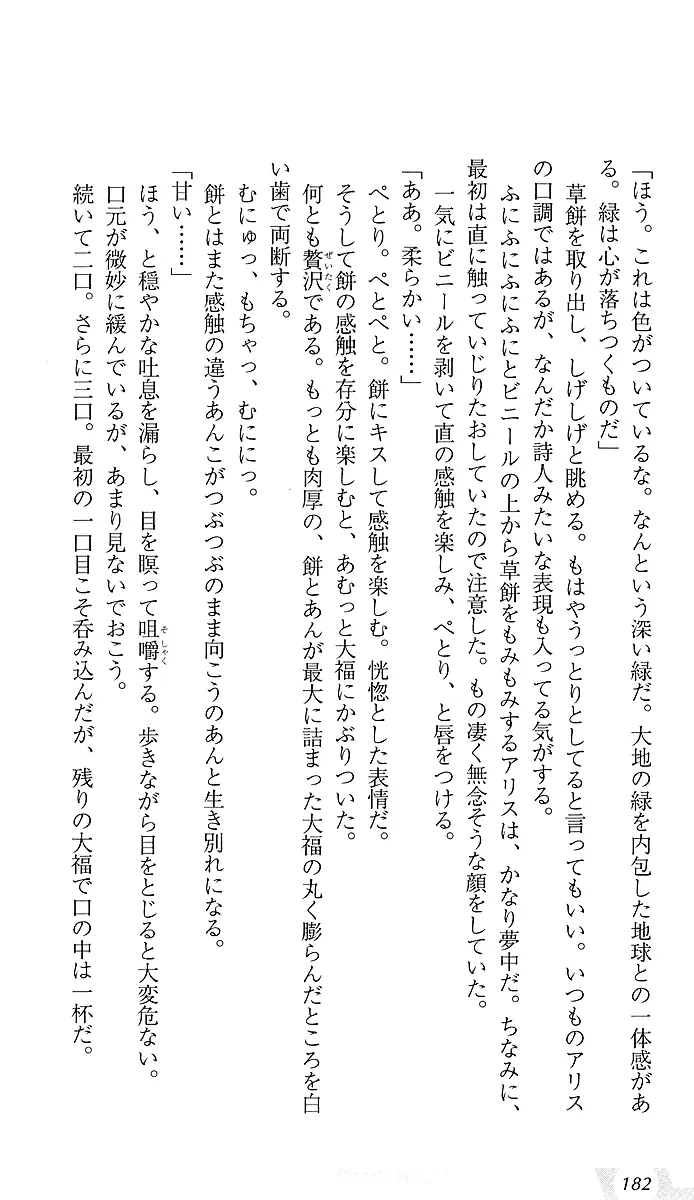 「ほう。これは色がついているな。なんという深い緑だ。大地の緑を内包した地球との一体感があ
る。緑は心が落ちつくものだ」
　草餅を取り出し、しげしげと眺める。もはやうっとりとしてると言ってもいい。いつものアリス
の口調ではあるが、なんだか詩人みたいな表現も入ってる気がする。
　ふにふにふにふにとビニールの上から草餅をもみもみするアリスは、かなり夢中だ。ちなみに、
最初は直に触っていじりたおしていたので注意した。もの凄く無念そうな顔をしていた。
　一気にビニールを剥いて直の感触を楽しみ、ぺとり、と唇をつける。
「ああ。柔らかい……」
　ぺとり。ぺとぺと。餅にキスして感触を楽しむ。恍惚とした表情だ。
　そうして餅の感触を存分に楽しむと、あむっと大福にかぶりついた。
　何とも贅沢である。もっとも肉厚の、餅とあんが最大に詰まった大福の丸く膨らんだところを白
ぜいたく
い歯で両断する。
　むにゅっ、もちゃっ、むににっ。
　餅とはまた感触の違うあんこがつぶつぶのまま向こうのあんと生き別れになる。
「甘い……」
　ほう、と穏やかな吐息を漏らし、目を瞑って咀嚼する。歩きながら目をとじると大変危ない。
そしゃく
　口元が微妙に緩んでいるが、あまり見ないでおこう。
　続いて二口。さらに三口。最初の一口目こそ呑み込んだが、残りの大福で口の中は一杯だ。
182